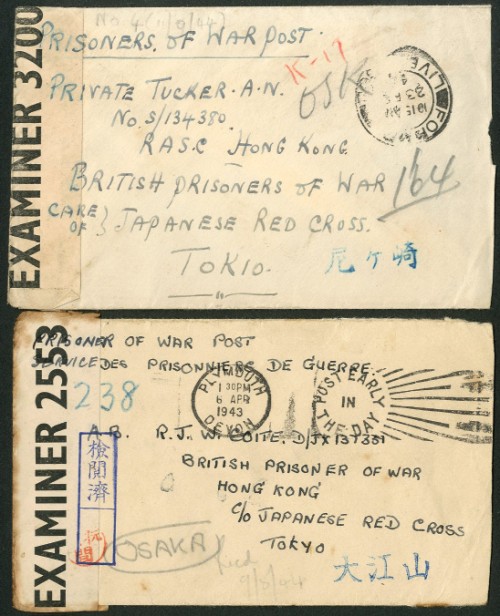 EXAMINER 3200
No 4 (11/9/04)
PRISONERS OF WAR POST.
K-17
PRIVATE TUCKER. A.N.
OSK
LIVE
FOR
10 15 AM
23 FE
No. S/134380.
R.A.S.C HONG KONG.
BRITISH PRISONERS OF WAR
164
CARE OF } JAPANESE RED CROSS.
TOKIO.
尼ヶ崎
EXAMINER 2553
PRISONER OF WAR POST
SERVICE DES PRISONNIERS DE GUERRE.
238
PLYMOUTH
1 30PM
6 APR
1943
DEVON
POST EARLY
IN
THE DAY
A.B. R.J.W. COITE, D/JX 137331
BRITISH PRISONER OF WAR
HONG KONG
C/o JAPANESE RED CROSS
TOKYO
検閲済
OSAKA
大江山